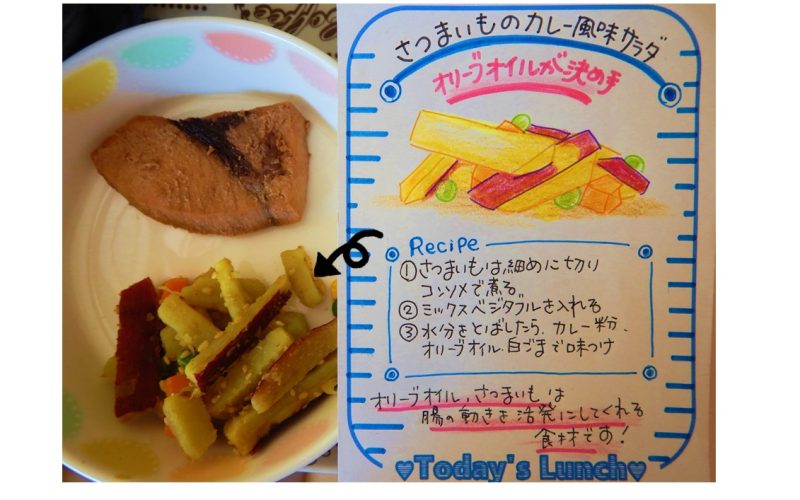 Coffee
さつまいものカレー風味サラダ
オリーブオイルが決め手
Recipe
①さつまいもは細めに切り
コンソメで煮る
②ミックスベジタブルを入れる
③水分をとばしたら、カレー粉、
オリーブオイル・白ごまで味つけ
オリーブオイル、さつまいもは
腸の動きを活発にしてくれる
食材です!
♥Today's Lunch♥